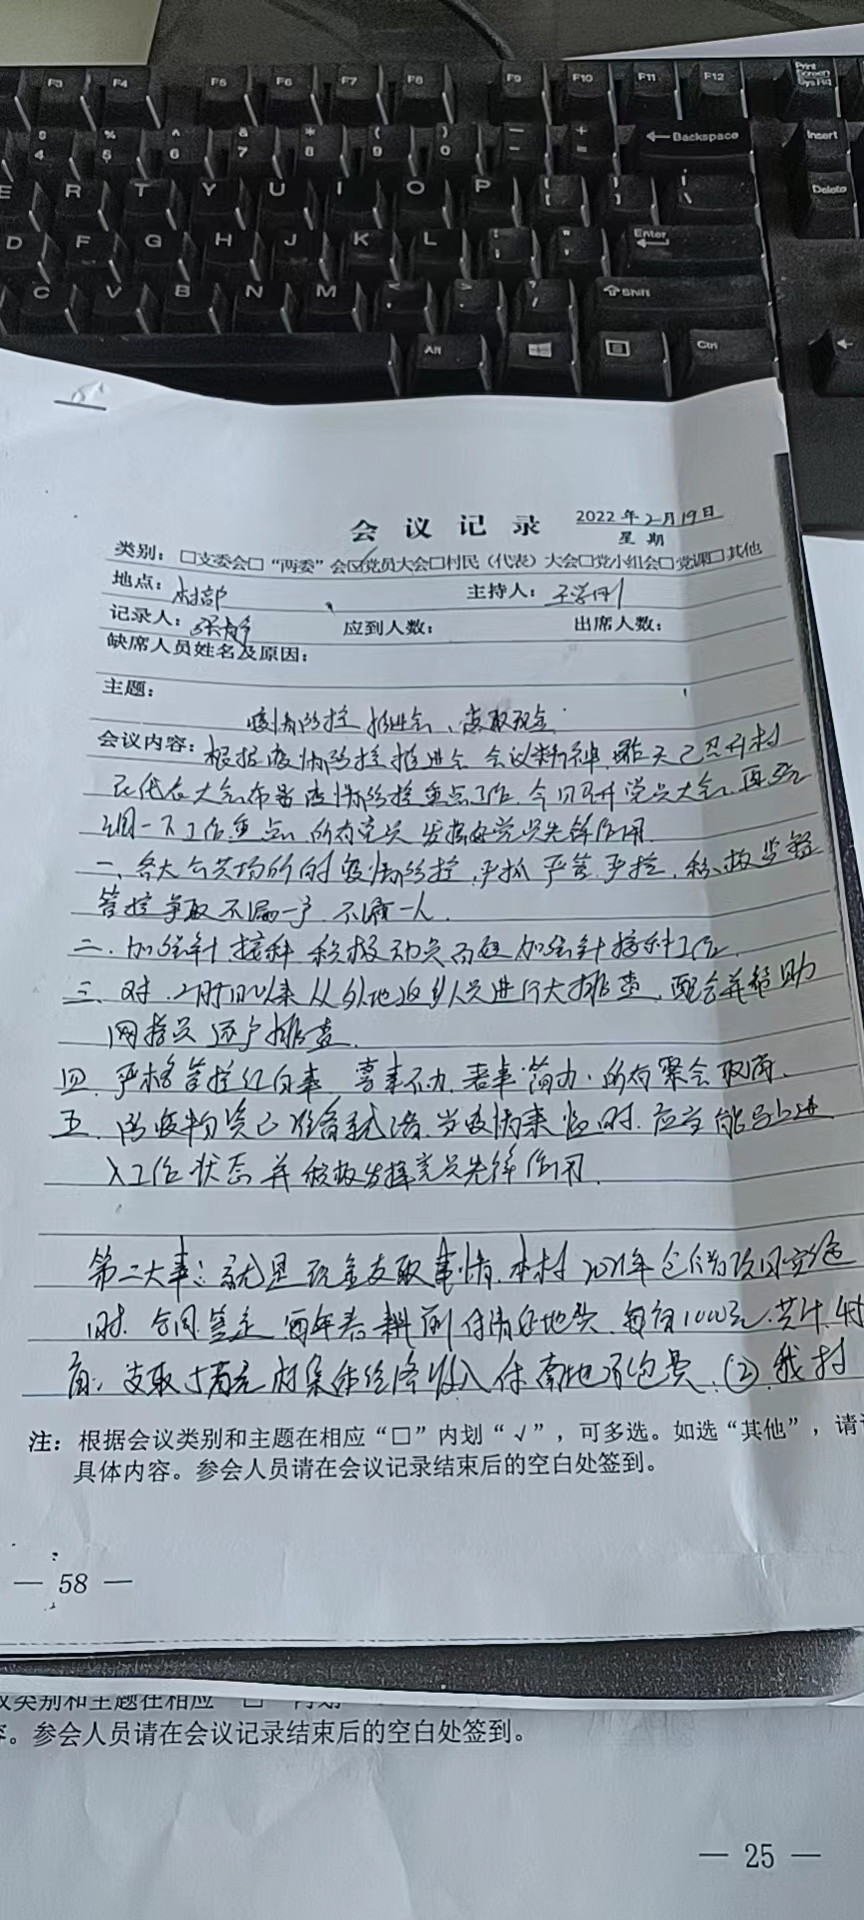 F3 F4 F5 F6 F7 F8 F9 F10 F11 F12 Print Screen SysRq
$ 4 % 5 ^ 6 & 7 * 8 ( 9 ) 0 — - + = ← Backspace Insert
E R T Y U I O P { [ } ] | \ Delete
D F G H J K L : ; " ' Enter
C V B N M < , > . ? / ⇧ Shift
Alt Ctrl ←
会议记录 2022年2月19日
星期
类别：□支委会□“两委”会☑党员大会□村民（代表）大会□党小组会□党课□其他
地点：村部 主持人：王学刚
记录人：张静 应到人数： 出席人数：
缺席人员姓名及原因：
主题：
疫情防控推进会、支取现金
会议内容：根据疫情防控推进会会议精神，昨天已召开村
民代表大会布署疫情防控重点工作，今日召开党员大会，再强
调一下工作重点，所有党员发挥好党员先锋作用。
一、各大公共场所的疫情防控，严抓严管严控，积极监督
管控争取不漏一户，不漏一人。
二、加强针接种积极动员而延加强针接种工作
三、对2月 日以来从外地返乡人员进行大排查，配合并帮助
网格员逐户排查。
四、严格管控红白事 喜事不办，丧事简办，所有聚会取消。
五、防疫物资已准备就绪，当疫情来临时，应当能马上进
入工作状态并积极发挥党员先锋作用。
第二大事：就是现金支取事情，本村2021年 项目实施
时，合同签定 年春耕前付清 地 ，每亩1000元，共计
亩，支取 万元村集体经济收入付 地承包费。（2）我村
注：根据会议类别和主题在相应“□”内划“√”，可多选。如选“其他”，请
具体内容。参会人员请在会议记录结束后的空白处签到。
— 58 —
议类别和主题在相应“□”内划
。参会人员请在会议记录结束后的空白处签到。
— 25 —